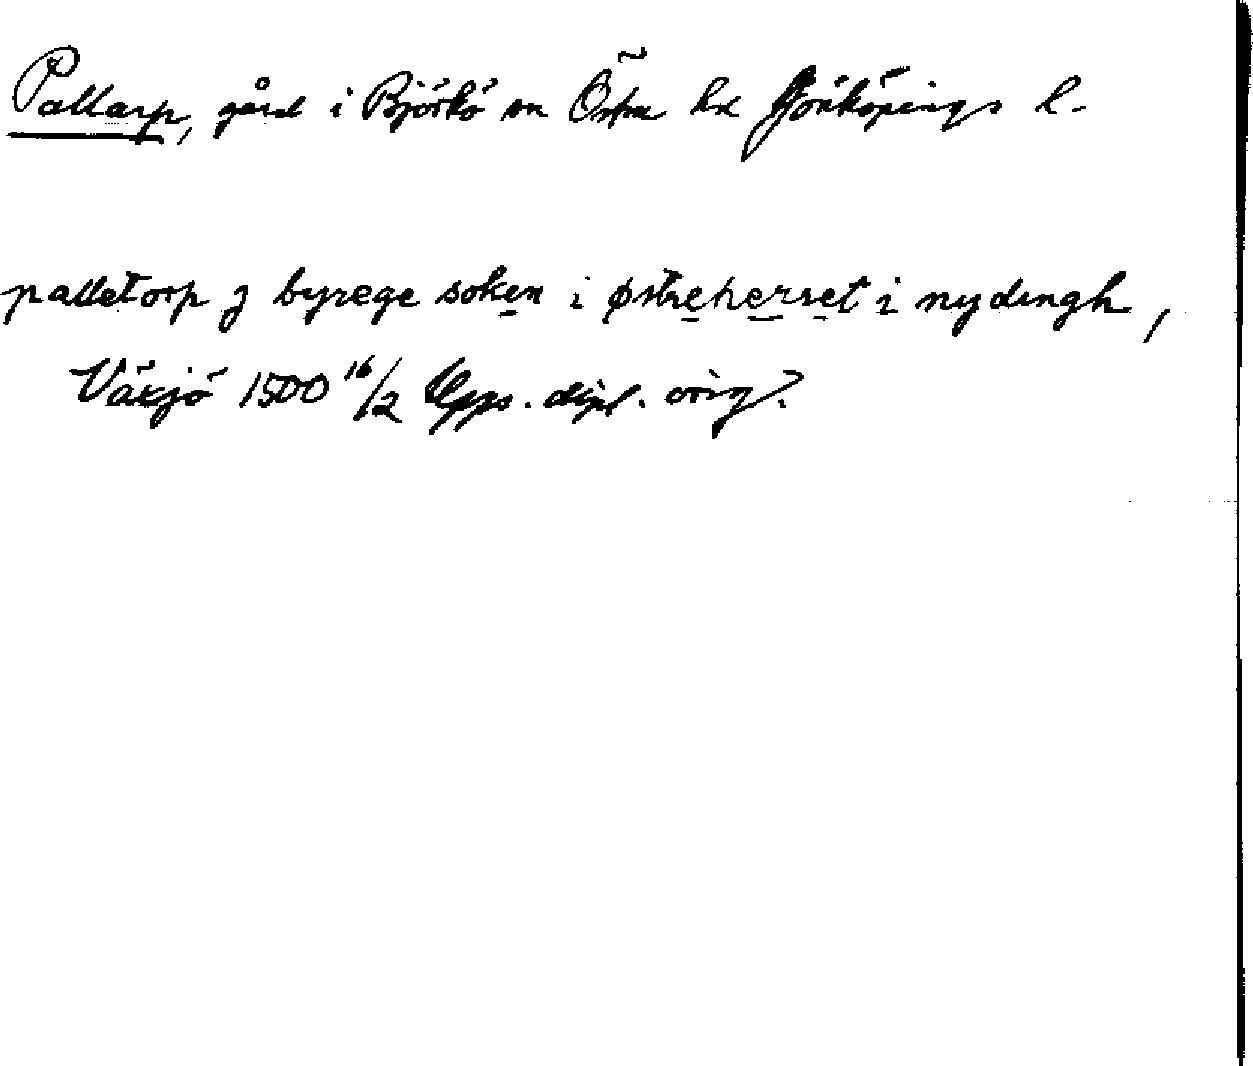 Pallarp, gård i Björkö sn Östra hd Jönköpings l.
palletorp j byrege soken i østreherret i nydingh,
Växjö 1500 16/2 Upps. dipl. orig.